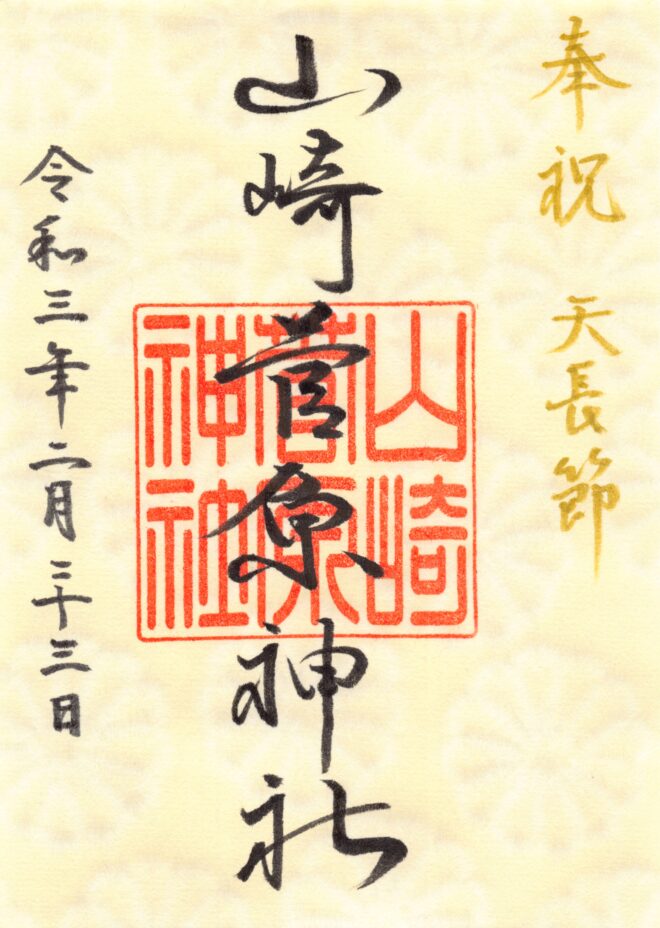 奉祝 天長節
山崎菅原神社
山崎
菅原
神社
令和三年二月二十三日